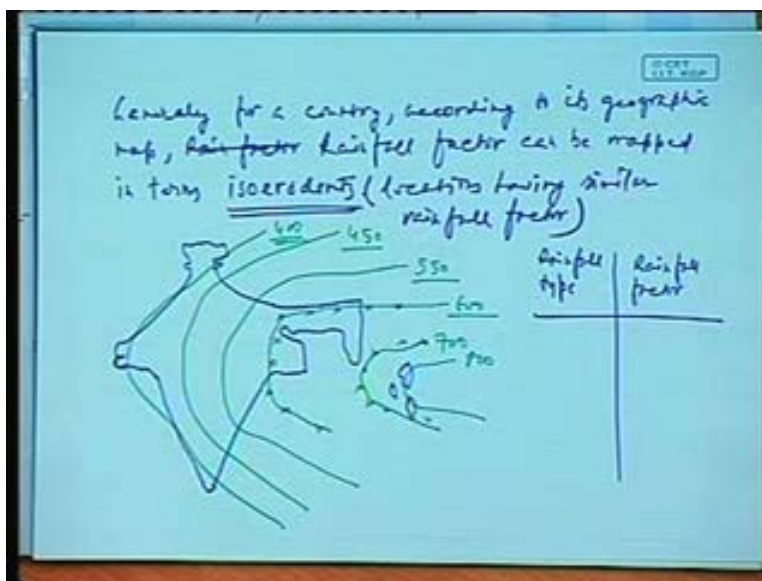 Generally for a country, according to its geographic
map, Rainfall factor can be mapped
in terms isoerodents (locations having similar
rainfall factor)
400
450
550
600
700
800
Rainfall type
Rainfall factor
© CET
I.I.T. KGP